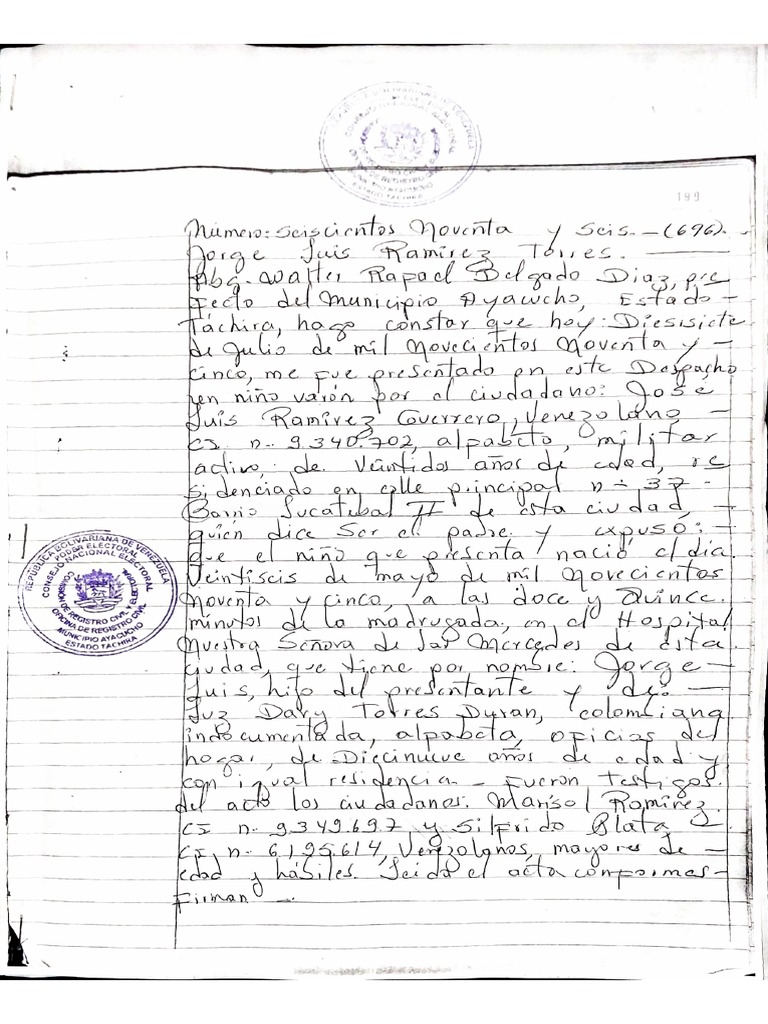 REPÚBLICA BOLIVARIANA DE VENEZUELA
ESTADO TACHIRA
199
Número: Seiscientos Noventa y Seis. - (696).
Jorge Luis Ramirez Torres. —
Abg. Walter Rapael Delgado Diaz, pre
fecto del Municipio Ayacucho, Estado -
Táchira, hago constar que hoy: Diesisiete
de Julio de mil Novecientos Noventa y -
cinco, me fue presentado en este Despacho
un niño varón por el ciudadano: José
Luis Ramirez Guerrero, Venezolano -
C.I. n- 9.340.702, alpabeto, militar
activo, de veintidos años de edad, re
sidenciado en calle principal n- 37 -
Barrio Sucatubal II de esta ciudad,
quién dice Ser el padre y expuso: -
que el niño que presenta nació el dia
Veintiseis de mayo de mil Novecientos
Noventa y cinco, a las doce y Quince.
minutos de la madrugada, en el Hospital
Nuestra Señora de las Mercedes de Esta
ciudad, que tiene por nombre: Jorge -
Luis, hijo del presentante y de: -
Luz Dary Torres Duran, colombiana
indocumentada, alpabeta, oficios del
hogar, de Diecinueve años de edad y
con igual residencia - Fueron testigos
del acto los ciudadanos: Marisol Ramirez
CI n- 9.349.697 y Silfrido Blata -
CI. n- 6.195.614, Venezolanos, mayores de -
edad y hábiles. Leida el acta conpormes -
Firman -
REPÚBLICA BOLIVARIANA DE VENEZUELA
PODER ELECTORAL
CONSEJO NACIONAL ELECTORAL
COMISIÓN DE REGISTRO CIVIL Y ELECTORAL
OFICINA DE REGISTRO CIVIL
MUNICIPIO AYACUCHO
ESTADO TACHIRA